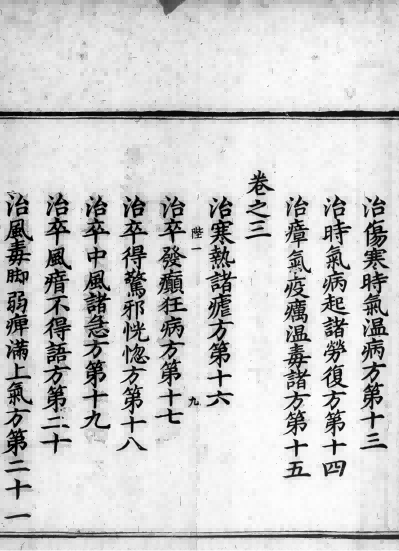 治傷寒時氣温病方第十三
治時氣病起諸勞復方第十四
治瘴氣疫癘温毒諸方第十五
卷之三
治寒熱諸瘧方第十六
陛一
九
治卒發癲狂病方第十七
治卒得驚邪恍惚方第十八
治卒中風諸急方第十九
治卒風瘖不得語方第二十
治風毒脚弱痺滿上氣方第二十一